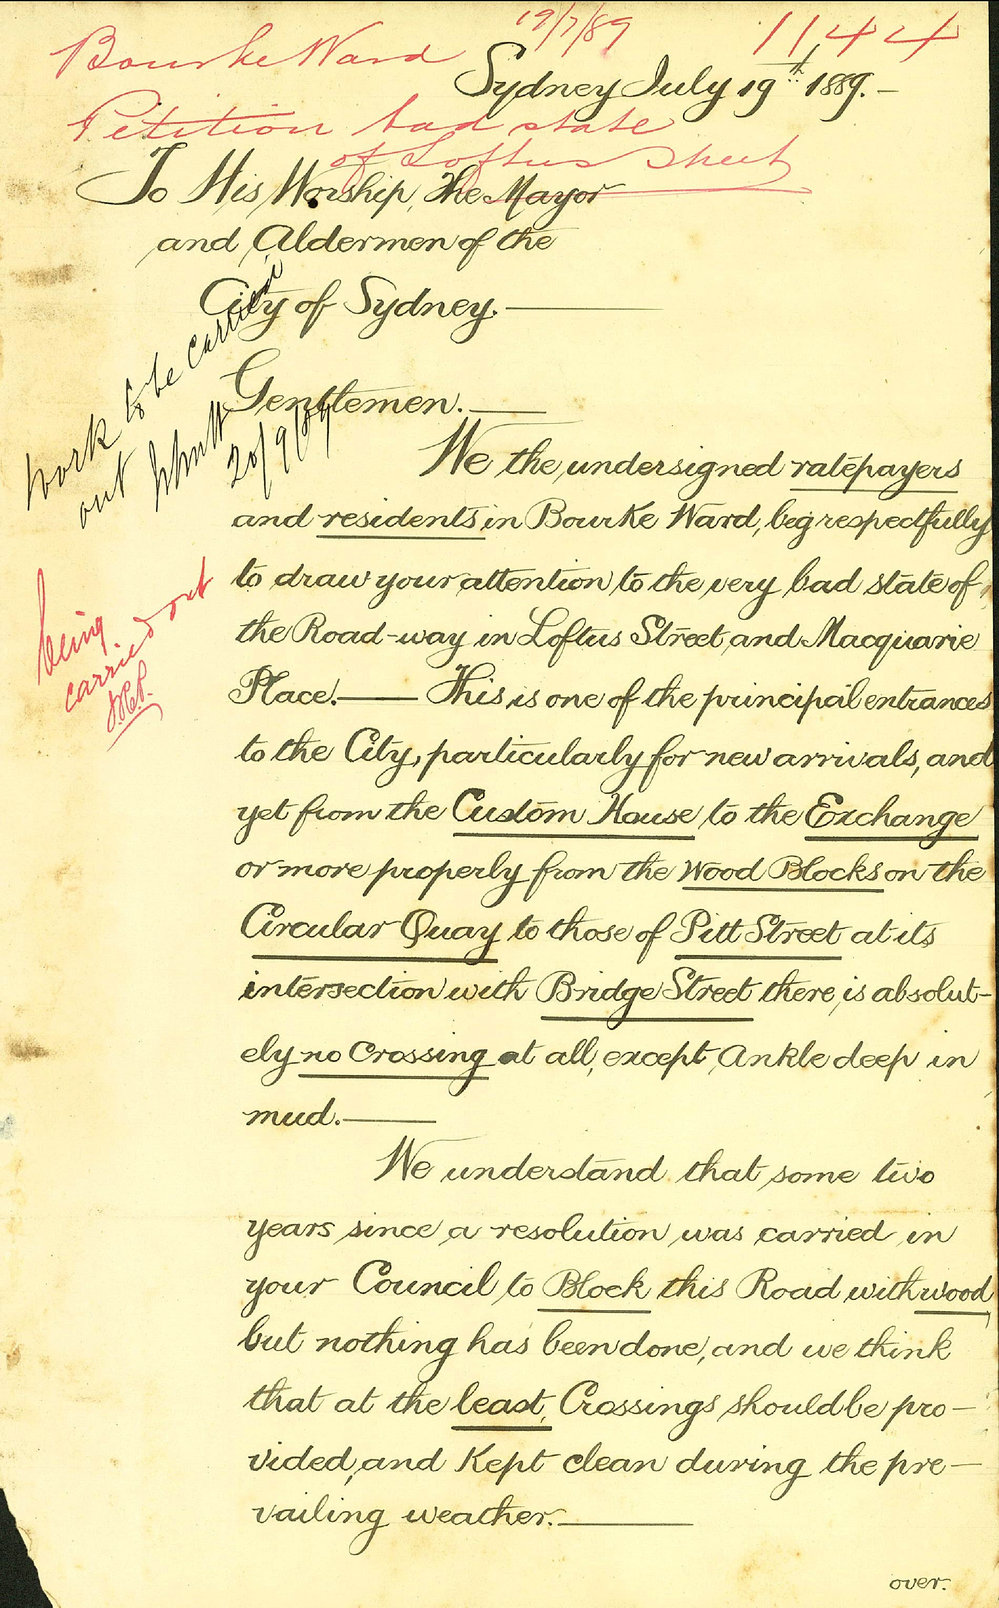 19/7/89
1144
Bourke Ward
Sydney July 19th 1889.—
Petition bad state
of Loftus Street
To His Worship, The Mayor
and Aldermen of the
City of Sydney.—
Gentlemen.—
work to be carried
out
20/9/89
We the undersigned ratepayers
and residents in Bourke Ward, beg respectfully
to draw your attention to the very bad state of
the Road-way in Loftus Street and Macquarie
Place.— This is one of the principal entrances
to the City, particularly for new arrivals, and
yet from the Custom House to the Exchange
or more properly from the Wood Blocks on the
Circular Quay to those of Pitt Street at its
intersection with Bridge Street there is absolut-
ely no Crossing at all, except Ankle deep in
mud.—
being
carried out
We understand that some two
years since a resolution was carried in
your Council to Block this Road with wood,
but nothing has been done, and we think
that at the least, Crossings should be pro-
vided, and Kept clean during the pre-
vailing weather.—
over.